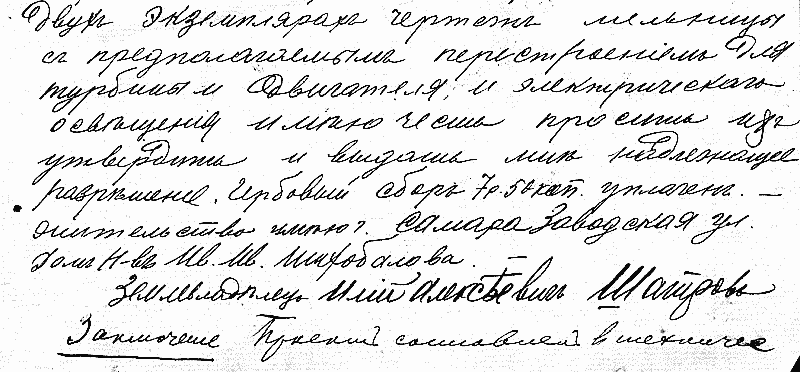 двухъ экземплярахъ чертежъ мельницы
съ предполагаемымъ перестроеніемъ для
турбины и двигателя, и электрическаго
освѣщенія имѣю честь просить ихъ
утвердить и выдать мнѣ надлежащее
разрѣшеніе. Гербовый сборъ 7 р. 50 коп. уплаченъ. —
жительство имѣю г. Самара Заводская ул.
домъ Н-въ Ив. Ив. Шихобалова. —
Землевладѣлецъ Илій Алексѣевичъ Шатровъ
Заключеніе Проектъ составленъ въ техничес